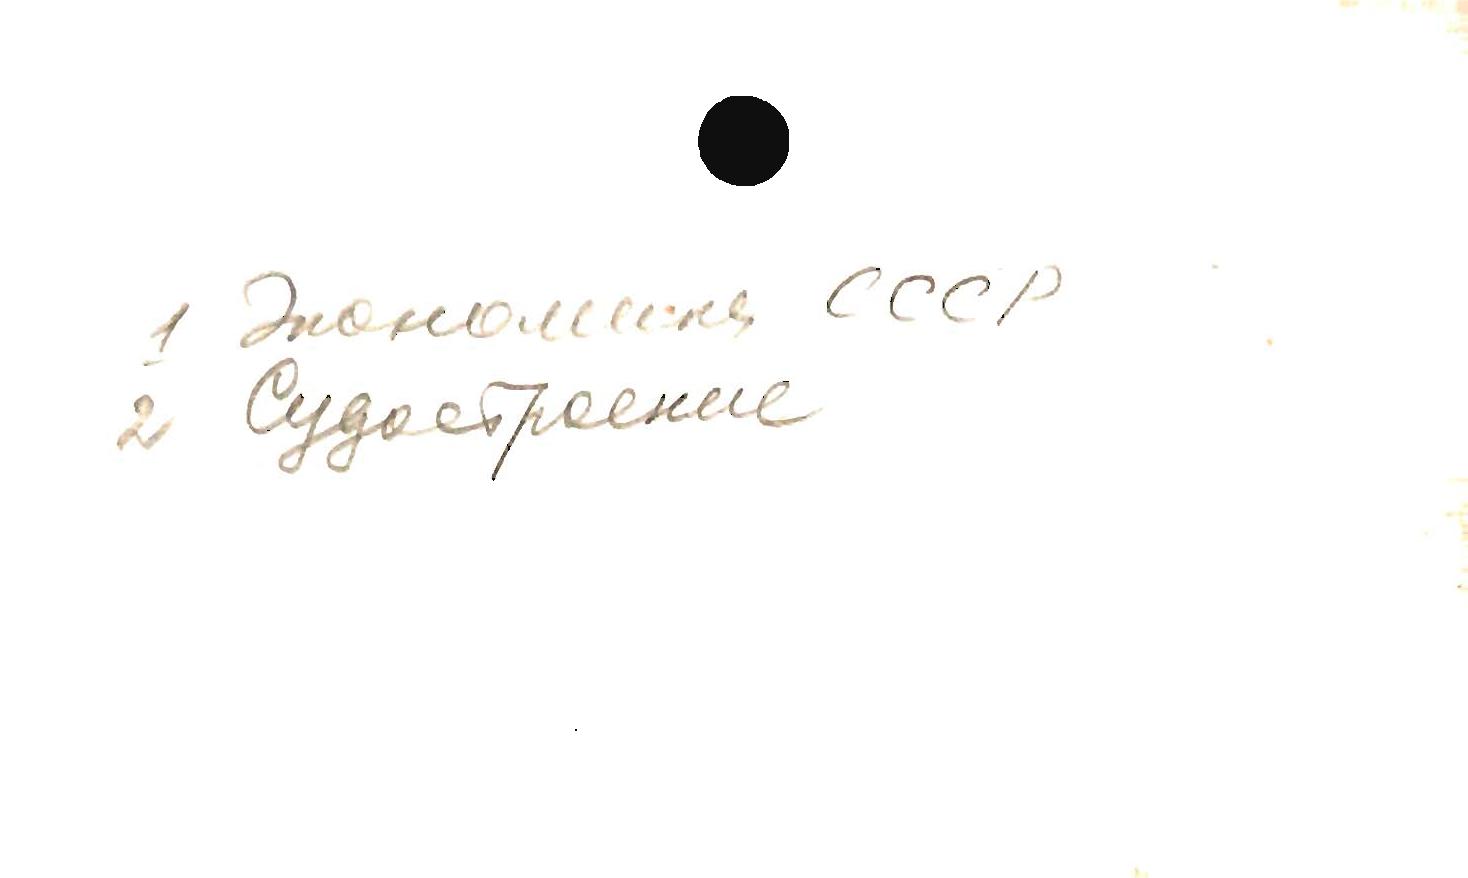 1 Экономика СССР
2 Судостроение